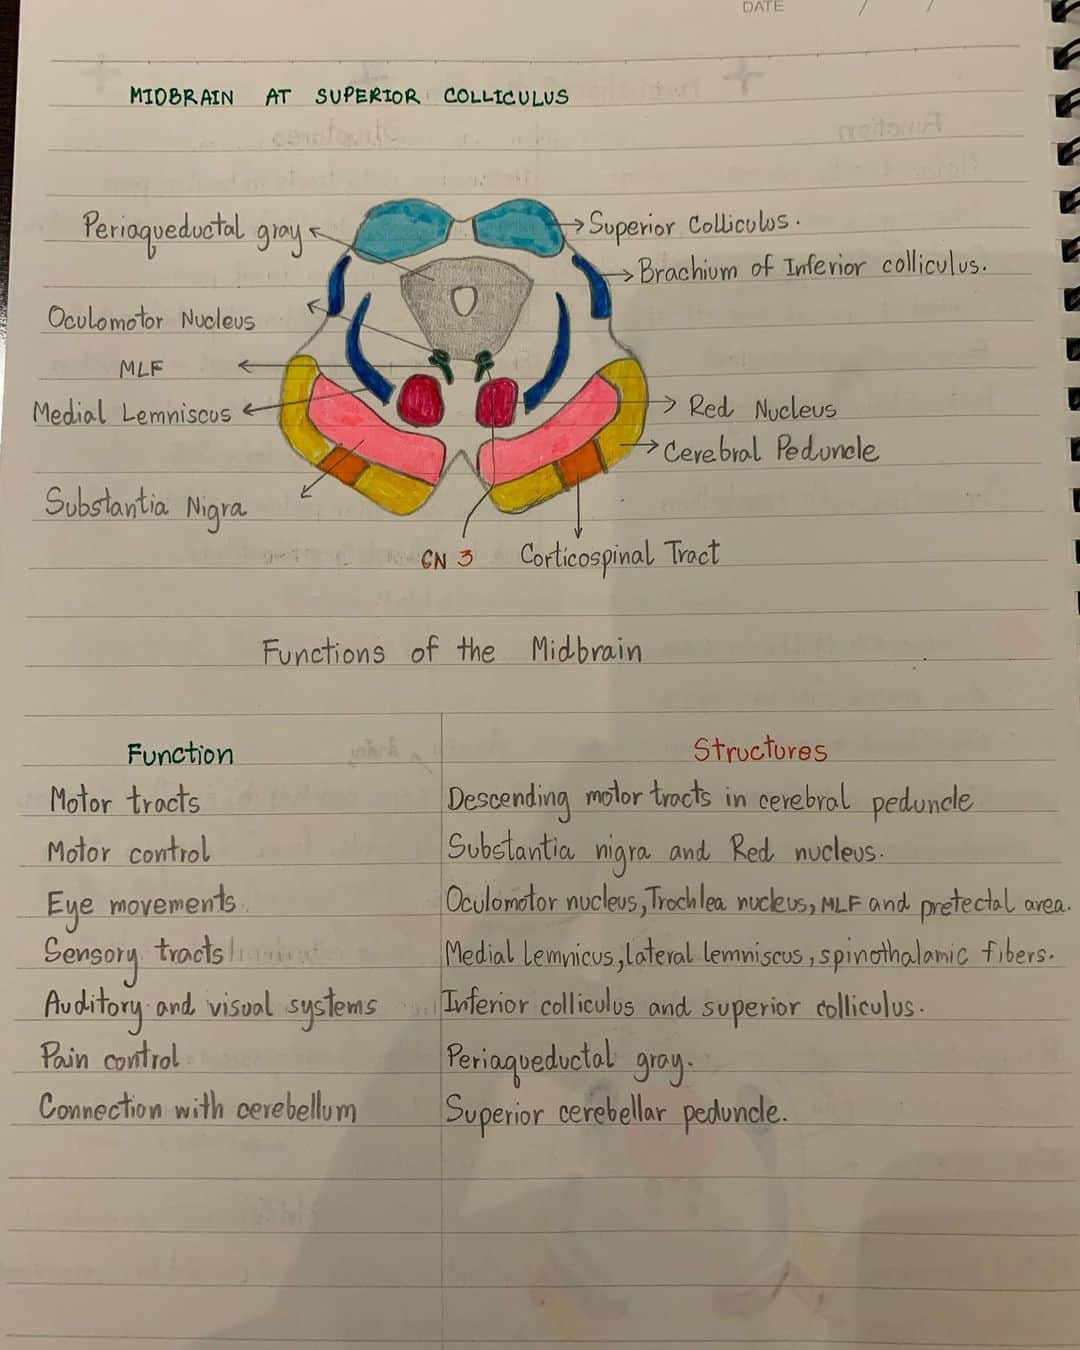 DATE / /
MIDBRAIN AT SUPERIOR COLLICULUS
Periaqueductal gray
Superior Colliculus.
Brachium of Inferior colliculus.
Oculomotor Nucleus
MLF
Medial Lemniscus
Red Nucleus
Cerebral Peduncle
Substantia Nigra
CN 3
Corticospinal Tract
Functions of the Midbrain
Function Structures
Motor tracts Descending motor tracts in cerebral peduncle
Motor control Substantia nigra and Red nucleus.
Eye movements Oculomotor nucleus, Trochlea nucleus, MLF and pretectal area.
Sensory tracts Medial lemnicus, lateral lemniscus, spinothalamic fibers.
Auditory and visual systems Inferior colliculus and superior colliculus.
Pain control Periaqueductal gray.
Connection with cerebellum Superior cerebellar peduncle.